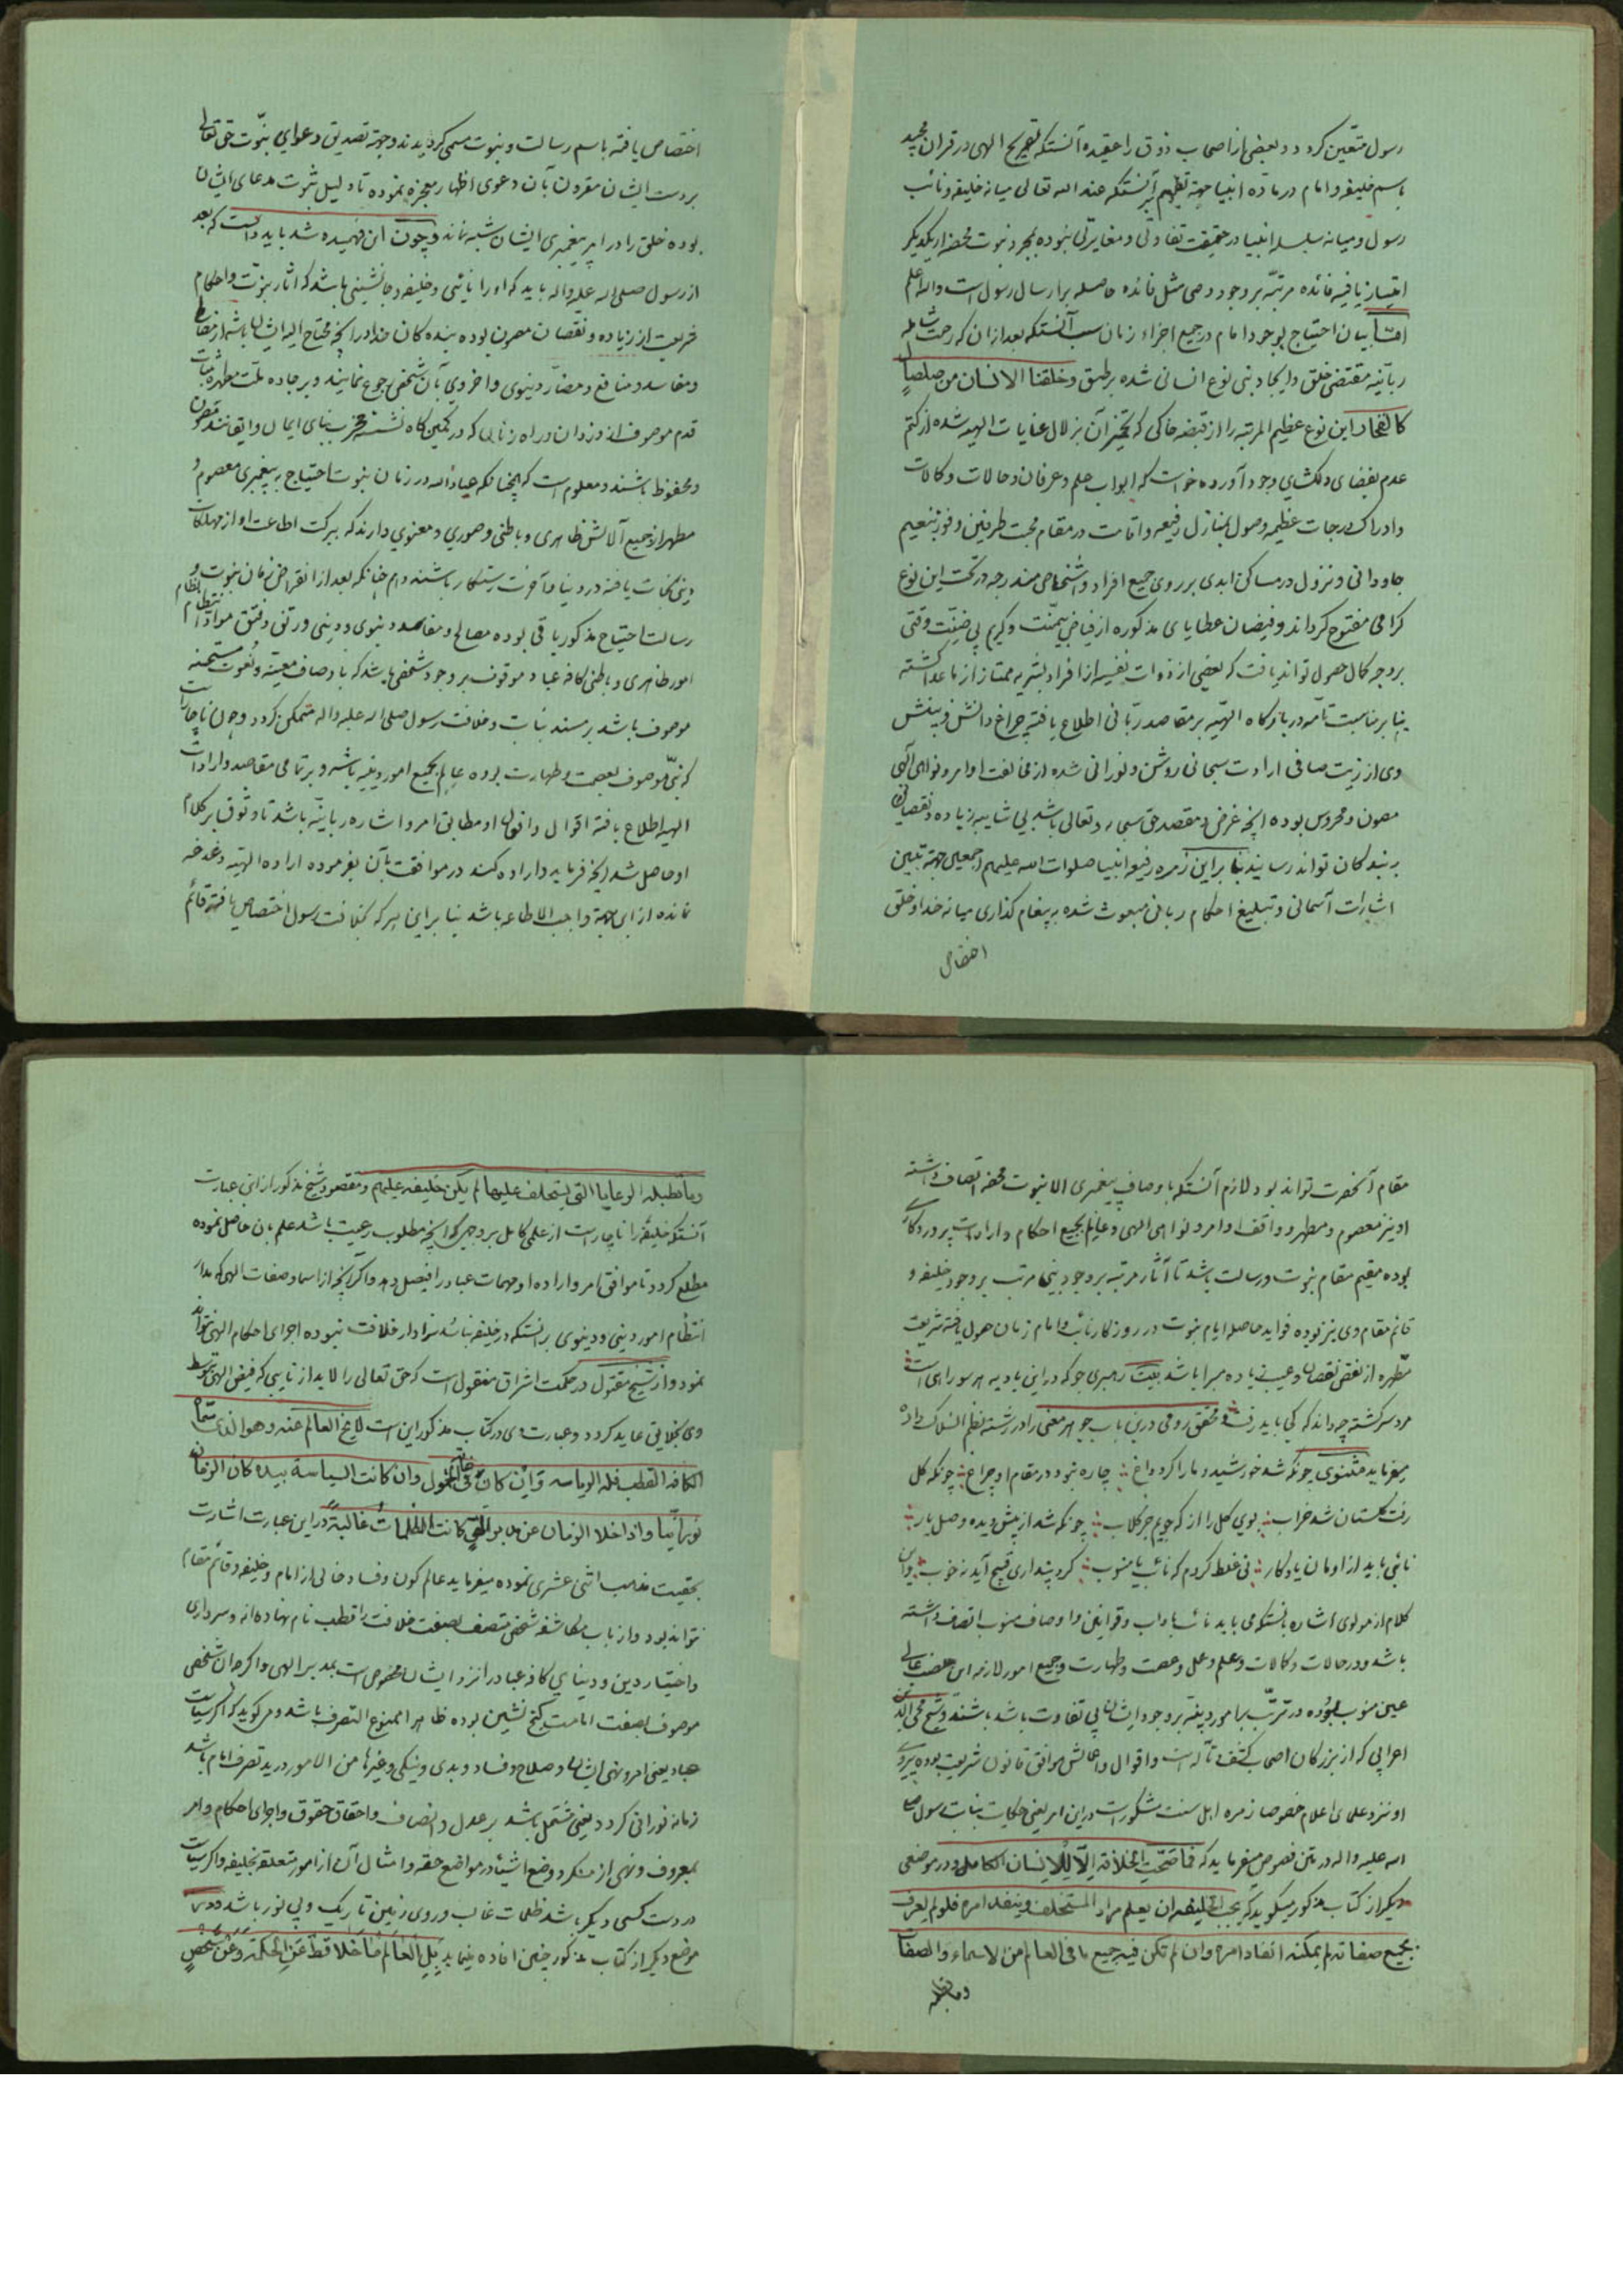 رسول متعین کردد و بعضی از اصحاب ذوق را عقیده آنستکه تصریح الهی در قران مجید
باسم خلیفه و امام در ماده انبیا جهة تفهیم آنستکه عند الله تعالی میانه خلیفه و نائب
رسول و میانه سلسله انبیا در حقیقت تفاوتی و مغایرتی نبوده بمجرد نبوت محضه از یکدیکر
امتیاز یافیه فائده مرتبه بر وجود وصی مثل فائده حاصله بر ارسال رسول است والله اعلم
امّا بیان احتیاج بوجود امام در جمیع اجزاء زمان سبب آنستکه بعد از ان که رحمت شامله
ربانیه مقتضی خلق و ایجاد بنی نوع انسانی شده بر طبق و خلقنا الانسان من صلصالٍ
کالفخار این نوع عظیم المرتبه را از قبضه خاکی که تخمیر آن بزلال عنایات الهیه شده از کتم
عدم بفضای دلکشای وجود آورده خواست که ابواب علم و عرفان و حالات و کالات
و ادراک درجات عظیمه و وصول بمنازل رفیعه و اقامت در مقام محبت طرفین و فوز بنعیم
جاودانی و نزول در مساکن ابدی بر روی جمیع افراد و اشخاص مندرجه در تحت این نوع
کرامی مفتوح کرداند و فیضان عطایای مذکوره از فیاض بیمنّت و کریم بی ضنّت وقتی
بر وجه کمال حصول تواند یافت که بعضی از ذوات نفیسه از افراد بشریه ممتاز از ماعدا کشته
بنا بر مناسبت تامه در بارکاه الهیّه بر مقاصد ربّانی اطلاع یافته چراغ دانش و بینش
وی از زیت صافی ارادت سبحانی روشن و نورانی شده از مخالفت اوامر و نواهی الهی
مصون و محروس بوده انچه غرض و مقصد حق سبحانه و تعالی باشد بی شایبه زیاده و نقصان
به بندکان تواند رسانید بنا بر این زمره رفیعه انبیا صلوات الله علیهم اجمعین جهة تبیین
اشارات آسمانی و تبلیغ احکام ربانی مبعوث شده به پیغام کذاری میانه خدا و خلق
اختصاص
اختصاص یافته باسم رسالت و نبوت مسمی کردیدند و جهة تصدیق دعوای نبّوت حق تعالی
بر دست ایشان مقرون بآن دعوی اظهار معجزه نموده تا دلیل ثبوت مدعای ایشان
بوده خلق را در امر پیغمبری ایشان شبه نماند و چون این فهمیده شد باید دانست که بعد
از رسول صلی الله علیه واله باید که او را نایبی و خلیفه و جانشینی باشد که اثار نبوّت و احکام
شریعت از زیاده و نقصان مصون بوده بنده کان خدا در انچه محتاج الیه ایشان باشد از مضار
و مفاسد و منافع و مضارّ دینوی و اخروی بآن شخص رجوع نمایند و بر جاده ملت مطهره ثابت
قدم موصوف از دزدان و راه زنانی که در کمین کاه نشسته مخرب بنای ایمان و ایقانند مصون
و محفوظ باشند و معلوم است که همچنانکه عباد الله در زمان نبوت احتیاج به پیغمبری معصوم و
مطهر از جمیع آلایش ظاهری و باطنی و صوری و معنوی دارند که ببرکت اطاعت او از مهلکات
دینی نجات یافته در دنیا و آخرت رستکار باشند هم چنانکه بعد از انقراض زمان نبوت و
رسالت احتیاج مذکور باقی بوده مصالح و مفاسد دنیوی و دینی و رتق و فتق مواد انتظام
امور ظاهری و باطنی کافه عباد موقوف بر وجود شخصی باشد که باوصاف معینه و نعوت مستحسنه
موصوف باشد بر مسند نیابت و خلافت رسول صلی الله علیه واله متمکن کردد و چون ناچار است
که نبّی موصوف بعصمت و طهارت بوده عالم بجمیع امور دینیه باشد و بر تمامی مقاصد و ارادات
الهیه اطلاع یافته اقوال و افعال او مطابق امر و اشاره ربانیّه باشد تا وثوق بر کلام
او حاصل شد انچه فرماید و اراده کند در موافقت بآن بفرموده اراده الهیّه دغدغه
نمانده از این جهة واجب الاطاعه باشد بنا بر این هر که بخلافت رسول اختصاص یافته قائم
مقام آنحضرت تواند بود لازم آنستکه باوصاف پیغمبری الا نبوت محضه اتصاف داشته
او نیز معصوم و مطهر و واقف اوامر و نواهی الهی و عالِم بجمیع احکام و ارادات پروردکاری
بوده مقیم مقام نبوت و رسالت باشد تا آثار مرتبه بر وجود نبی مرتب بر وجود خلیفه و
قائم مقام وی نیز بوده فواید حاصله ایام نبوت در روزکار نائب و امام زمان حصول یافته شریعت
مطهره از نقض نقصان و عیب زیاده مبرا باشد بیت رهبری جو که در این بادیه هر سو راهی است
مرد سرکشته چه داند که کجا باید رفت و محقق رومی در این باب جواهر معنی را در رشته نظم انسلاک داده
میفرماید مثنوی چونکه شد خورشید و ما را کرد داغ چاره نبود در مقام او چراغ چونکه کل
رفت کلستان شد خراب بوی کل را از که جویم جز کلاب چونکه شد از پیش دیده وصل یار
نائبی باید از او مان یادکار نی غلط کردم که نائب یا منوب کر دو پنداری قبیح آید نه خوب و این
کلام از مولوی اشاره بانستکه می باید نائب باداب و قوانین و اوصاف منوب اتصاف داشته
باشد و در حالات و کالات و علم و عمل و عصمت و طهارت و جمیع امور لازمه این منصب عالی
عین منوب بوده در ترتّب بر امور دینیّه بر وجود ایشان بی تفاوت باشد باشند و شیخ محی الدین
اعرابی که از بزرکان اصحاب کشف و تآله است و اقوال و اعمالش موافق قانون شریعت بوده پیروی
او نزد علمای اعلام خصوصا زمره اهل سنت مشکور است در این امر یعنی حکایت نیابت رسول صلی
الله علیه واله در متن فصوص میفرماید که فما صَحّت الخلافة الّا للانسان الکامل و در موضعی
دیکر از کتاب مذکور میکوید که یجب الخلیفه ان یعلم مراد المستخلف و ینفد امره فلو لم یعرف
بجمیع صفاته لم یمکنه انفاد امره و ان لم تکن فیه جمیع ما فی العالم من الاسماء و الصفات
وما تطلبه
وما تطلبه الرعایا التی یستخلف علیها لم یکن خلیفه علیهم و مقصود شیخ مذکور از این عبارت
آنستکه خلیفه را ناچار است از علمی کامل بر وجهی که انچه مطلوب رعیت باشد علم بان حاصل نموده
مطلع کردد تا موافق امر و اراده او مهمات عباد را فیصل دهد و اکر انچه از اسما و صفات الهی که مدار
انتظام امور دینی و دنیوی بر انستکه در خلیفه نباشد سزاوار خلافت نبوده اجرای احکام الهی نتواند
نمود و از شیخ مقتول در حکمت اشراق منقول است که حق تعالی را لابد از نایبی که فیض الهی بتوسط
وی بخلایق عاید کردد و عبارت وی در کتاب مذکور این است لا یخ العالم عنه و هو الذی سماه
الکافه القطب فله الریاسه و اِن کان فی غایة الخمول و ان کانت السیاسة بیده کان الزمان
نورانیّا و اذا خلا الزمان عن تدبیر الهی کانت الظلمات غالبةً در این عبارت اشارت
بحقیت مذهب اثنی عشری نموده میفرماید عالم کون و فساد خالی از امام و خلیفه و قائم مقام
نتواند بود و ارباب مکاشفه شخص متصف بصفت خلافت را قطب نام نهاده اند و سرداری
و اختیار دین و دنیای کافه عباد را نزد ایشان مخصوص است بمدبر الهی و اکرچه ان شخصی
موصوف بصفت امامت کنج نشین بوده ظاهرا ممنوع التصرف باشد و میکوید که اکر سیاست
عباد یعنی امر و نهی ایشان و صلاح و فساد و بدی و نیکی و غیرها من الامور در ید تصرف امام باشد
زمانه نورانی کردد یعنی مشتمل باشد بر عدل و انصاف و احقاق حقوق و اجرای احکام و امر
بمعروف و نهی از منکر و وضع اشیاء در مواضع حقه و امثال آن از امور متعلقه بخلیفه و اکر سیاست
در دست کسی دیکر باشد ظلمات غالب و روی زمین تاریک و بی نور باشد و در
موضع دیکر از کتاب مذکور چنین افاده مینماید بَلِ العَالَم مَا خَلا قطّ عَنِ الحکمَة وَ عَن شَخصٍ